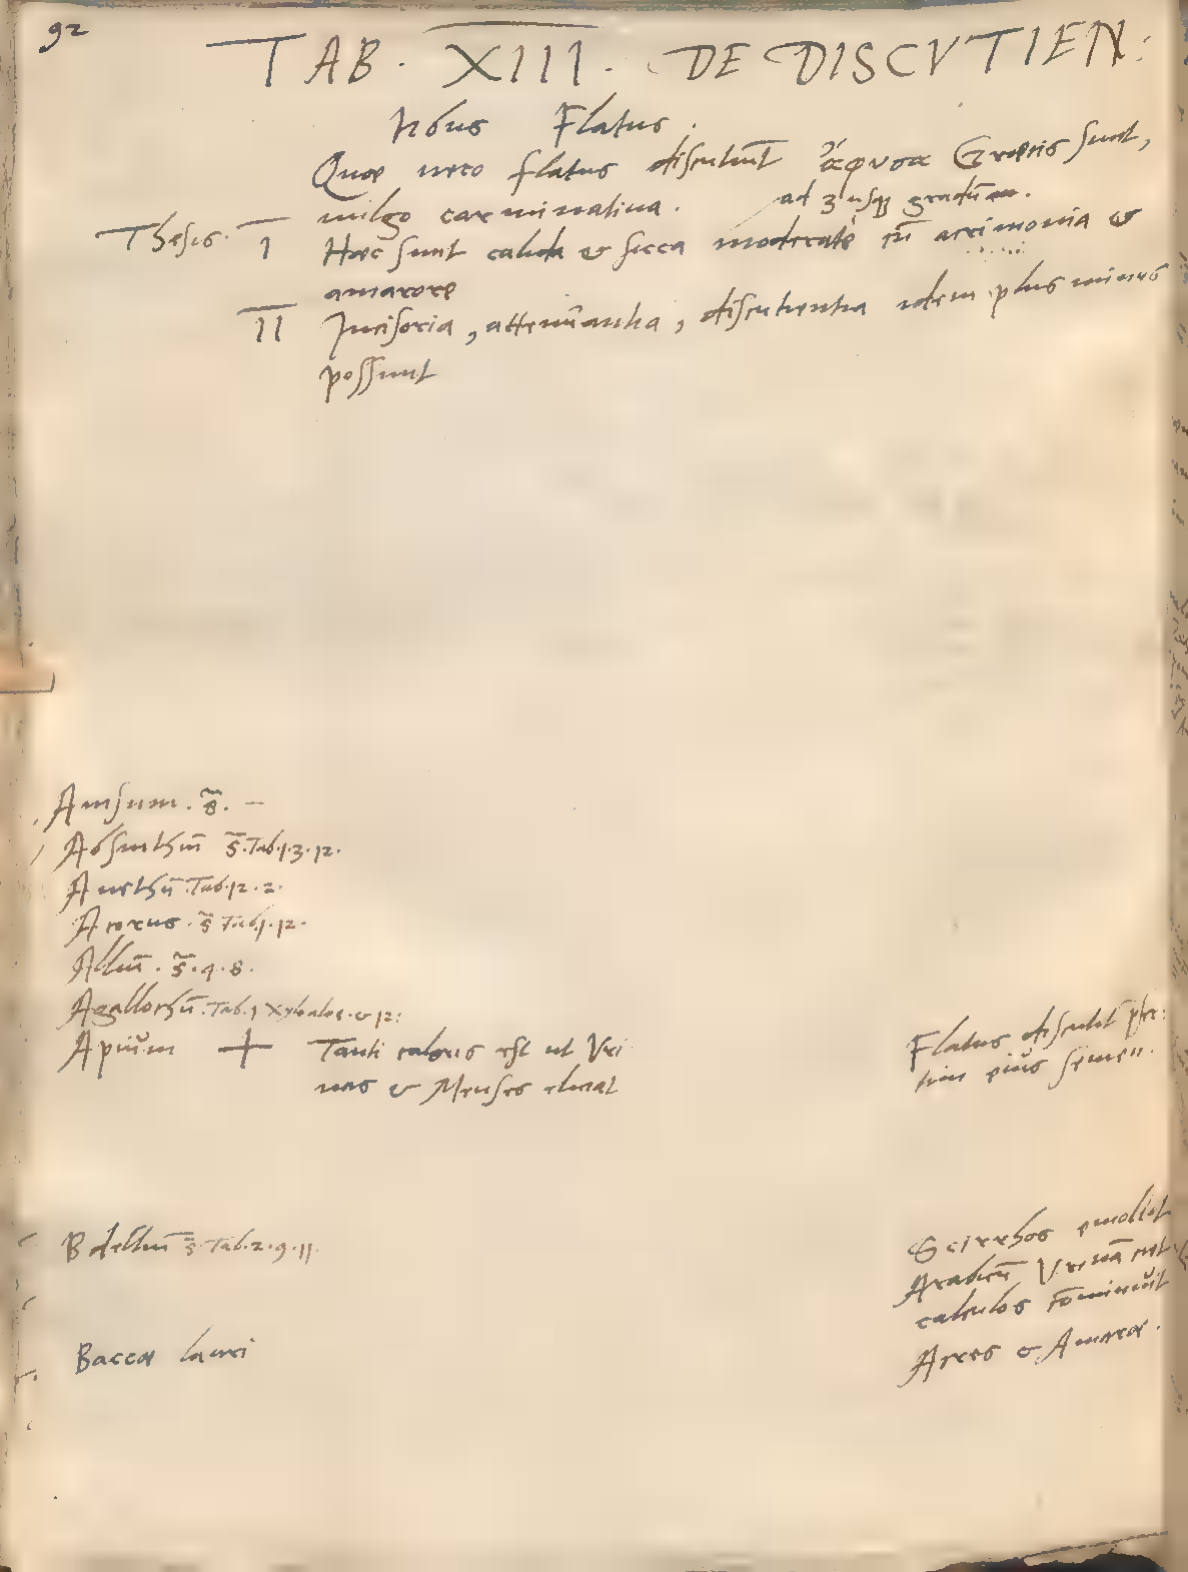 92
TAB. XIII. DE DISCVTIEN:
tibus Flatus.
Quæ vero flatus discutiūt ἄφυσα Græcis sunt,
vulgo carminativa. ad 3 usq gradū.
Thesis. I Hæc sunt calida & sicca moderatè cū acrimonia &
amarore
II Incisoria, attenuantia, discutientia idem plus minus
possunt
Anisum. s̃. —
Absinthiū s̃. Tab. 1. 3. 12.
Anethū. Tab. 12. 2.
Acorus. s̃ Tab. 1. 12.
Alliū. s̃. 4. 8.
Agallochū. Tab. 1 Xyloaloe. & 12:
Apiŭm + Tanti caloris est ut Vri
nas & Menses cieat
Flatus discutit præ:
tim eiŭs semen.
Bdelliū s̃. Tab. 2. 9. 11.
Scirrhos emollit
Arabicū Vrinā ciet
calculos cōminŭit
Baccæ lauri
Acres & Amaræ.